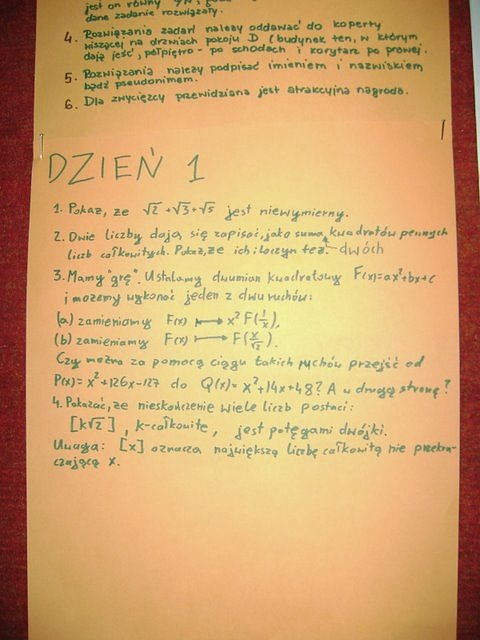 jest on równy
dane zadanie rozwiązały.
4. Rozwiązania zadań należy oddawać do koperty
wiszącej na drzwiach pokoju D (budynek ten, w którym
dają jeść, półpiętro - po schodach i korytarz po prawej.
5. Rozwiązania należy podpisać imieniem i nazwiskiem
bądź pseudonimem.
6. Dla zwycięzcy przewidziana jest atrakcyjna nagroda.
DZIEŃ 1
1. Pokaż, że √2 + √3 + √5 jest niewymierny.
2. Dwie liczby dają się zapisać, jako suma kwadratów pewnych
liczb całkowitych. Pokaż, że ich iloczyn też. dwóch
3. Mamy "grę". Ustalamy dwumian kwadratowy F(x)=ax²+bx+c
i możemy wykonać jeden z dwu ruchów:
(a) zamieniamy F(x) ↦ x² F(1/x).
(b) zamieniamy F(x) ↦ F(x/√2).
Czy można za pomocą ciągu takich ruchów przejść od
P(x)= x²+126x-127 do Q(x)= x²+14x+48? A w drugą stronę?
4. Pokazać, że nieskończenie wiele liczb postaci:
[k√2], k-całkowite, jest potęgami dwójki.
Uwaga: [x] oznacza największą liczbę całkowitą nie przekra-
czającą x.